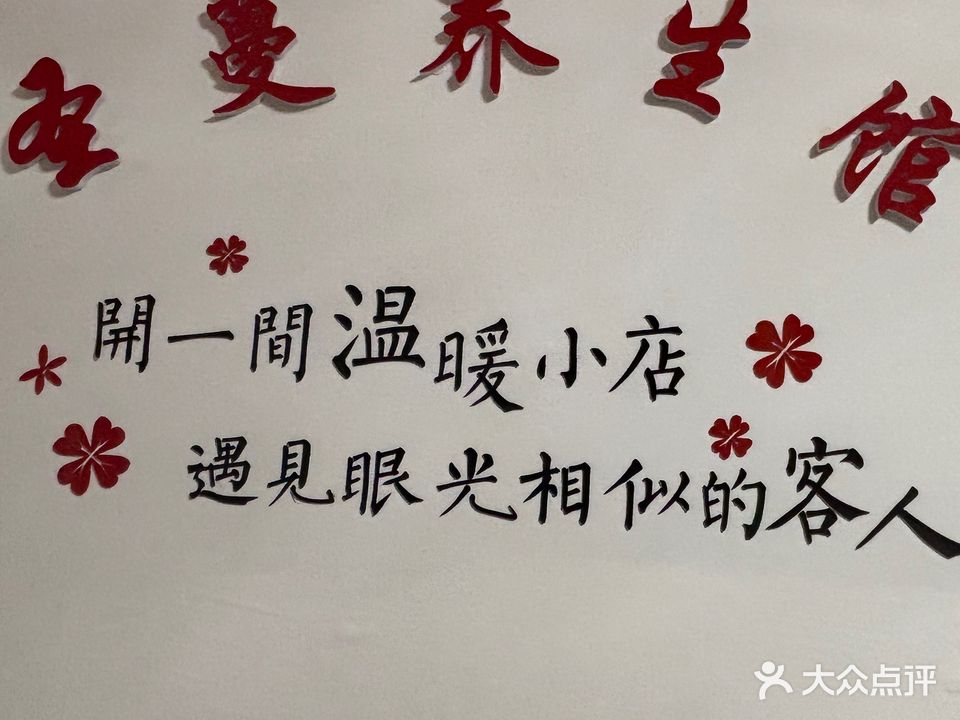 曼养生馆
開一間温暖小店
遇見眼光相似的客人
大众点评